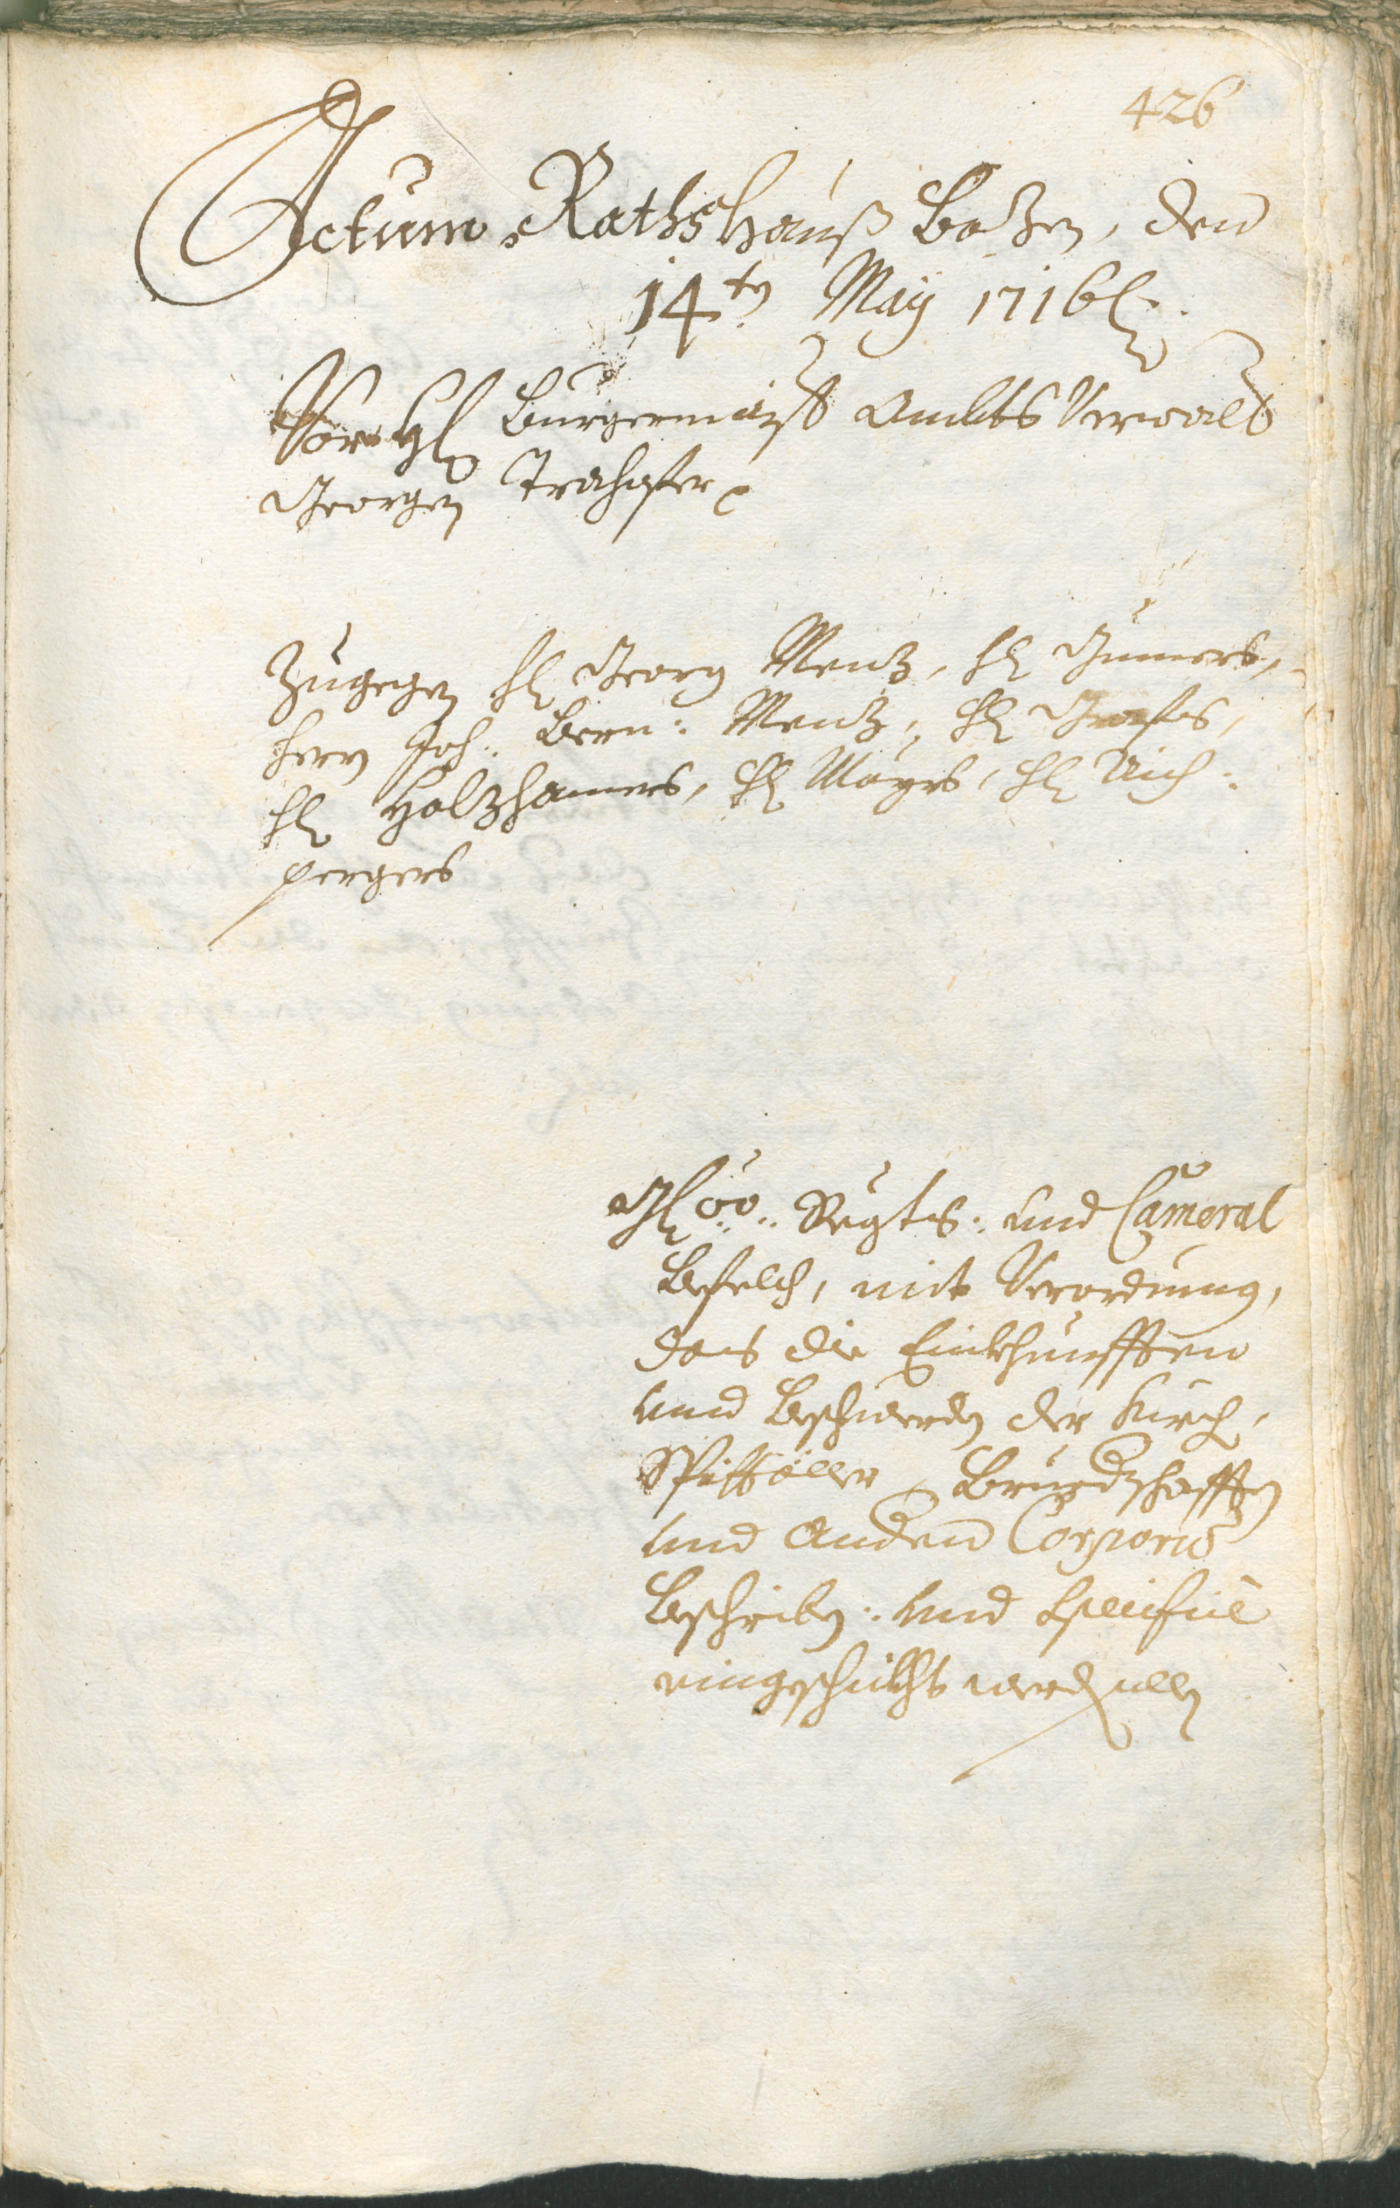 426
Actum Rathshauß Botzen, den
14.ten May 1716
Vor Hl Burgermaister Ambts Verwald
Georgen Trochofer
Zugegen hl Georg Mentz, hl Gumers,
herrn Joh: Bern: Mentz, hl Grafes,
hl Holzhamers, hl Mayrs, hl Aich:
pergers
öö: Regts: und Cameral
Befelch, mit Verordnung,
das die Einkhunfften
unnd Beschwerden der Kirch,
Spittäller, Bruedschafften
und Andern Corporum
Beschriben: und Specifice
eingeschickht werden sollen